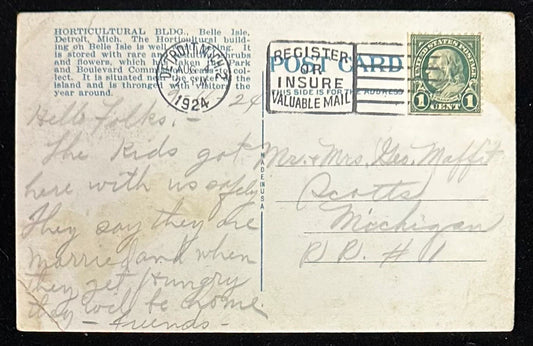 HORTICULTURAL BLDG., Belle Isle,
Detroit, Mich. The Horticultural build-
ing on Belle Isle is well
is stored with rare and shrubs
and flowers, which taken Park
and Boulevard Comm col-
lect. It is situated ne the center
island and is throng with visitors the
year around.
DETROIT, MICH. 2
AUG
1924
REGISTER
OR
INSURE
VALUABLE MAIL
POST CARD
THIS SIDE IS FOR THE ADDRESS
UNITED STATES POSTAGE
1 CENT 1
24
Hello Folks. –
The Kids got
here with us safely
They say they are
married and when
they get hungry
they will be home.
– Friends –
MADE IN USA
Mr. & Mrs. Geo. Maffit
Scotts
Michigan
R.R. # 1